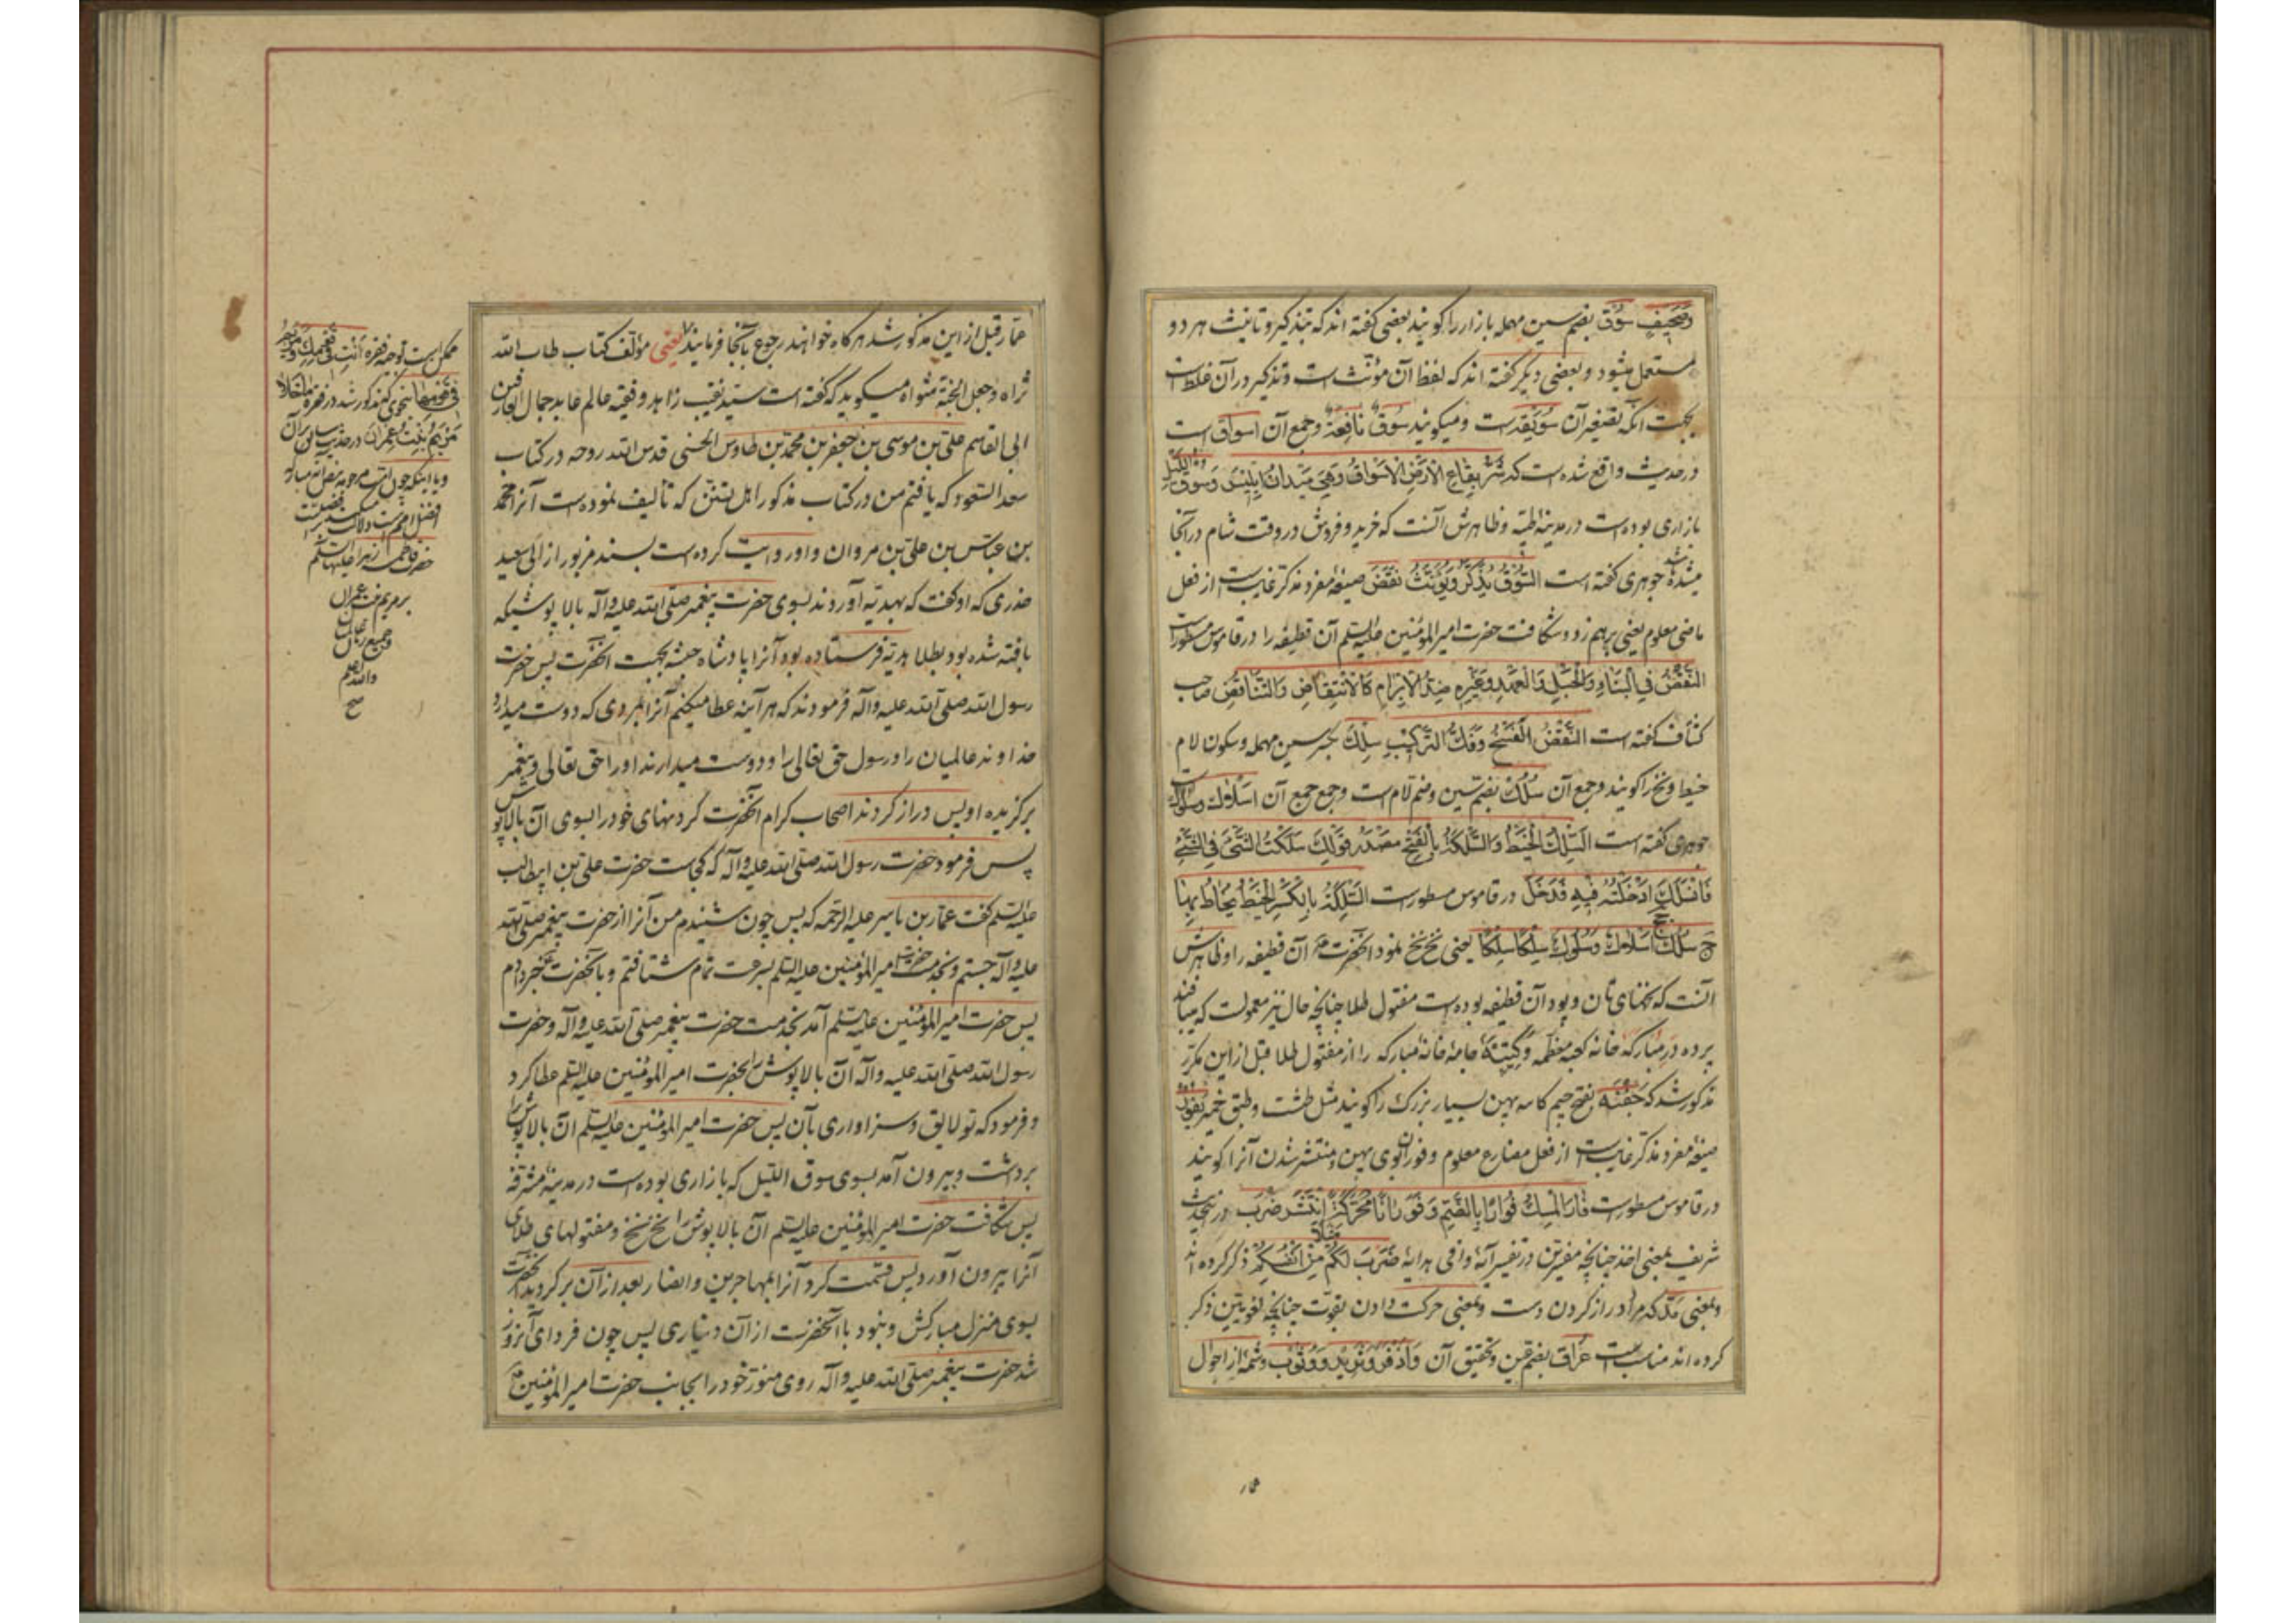 وضعیف سُوق بضم سین مهمله بازار را کویند بعضی کفته اند که تذکیر و تانیث هر دو
مستعمل میشود و بعضی دیکر کفته اند که لفظ آن مؤنث است و تذکیر در آن غلط است
بجهت آنکه تصغیر آن سُوَیقه است و میکویند سُوقٌ نافِعَةٌ و جمع آن اسواق است
در حدیث واقع شده است که شَرُّ بِقاعِ الاَرضِ الاَسواقُ وَهِیَ مَیدانُ اِبلیسَ وسوق اللیل
بازاری بوده است در مدینه طیبه و ظاهرش آنست که خرید و فروش در وقت شام در آنجا
میشده جوهری کفته است السُّوقُ یُذَکَّرُ وَیُؤَنَّثُ نَقَضَ صیغه مفرد مذکر غایب است از فعل
ماضی معلوم یعنی برهم زد و شکافت حضرت امیر المؤمنین علیه السلم آن قطیفه را در قاموس مسطور است
النَّقضُ فی البِناءِ وَالحَبلِ وَالعَهدِ وَغَیرِهِ ضِدُّ الاِبرامِ کَالاِنتِقاضِ وَالتَّناقُضِ صاحب
کشاف کفته است النَّقضُ الفَسخُ وَفَکُّ التَّرکیبِ سِلك بکسر سین مهمله و سکون لام
خیط و نخ را کویند و جمع آن سُلُك بضم سین و ضم لام است و جمع جمع آن اسلاك وسلوك است
جوهری کفته است السِّلكُ الخَیطُ وَالسَّلكُ بِالفَتحِ مَصدَرُ قَولِكَ سَلَکتُ الشَّیءَ فِی الشَّیءِ
فَانسَلَكَ اَدخَلتُهُ فیهِ فَدَخَلَ در قاموس مسطورست السِّلکَةُ بِالکَسرِ الخَیطُ یُخاطُ بِها
ج سِلكٌ اَسلاكٌ وَسُلُوكٌ سِلکاً سِلکاً یعنی نخ نخ نمود آنحضرت آن قطیفه را و ظاهرش
آنست که نخهای تان و پود آن قطیفه بوده است مفتول طلا چنانچه حال نیز معمولست که میبافند
پرده در مبارکه خانه کعبه معظمه و کتیبه جامه خانه مبارکه را از مفتول طلا قبل از این مکرر
مذکور شد که جَفنَه بفتح جیم کاسه پهن بسیار بزرك را کویند مثل طشت و طبق خمیر یَفورُ
صیغه مفرد مذکر غایب است از فعل مضارع معلوم و فوران بوی پهن و منتشر شدن آنرا کویند
در قاموس مسطورست فارَ المِسكُ فُواراً بِالضَّمِّ وَفَوَراناً مُحَرَّکَةً اِنتَشَرَ ضَرَبَ در این حدیث
شریف بمعنی اخذ چنانچه مفسرین در تفسیر آیه وافی هدایه ضَرَبَ لَکُم مَثَلاً مِن اَنفُسِکُم ذکر کرده اند
و بمعنی مَدّ که مراد دراز کردن دست و بمعنی حرکت دادن بقوت چنانچه لغویین ذکر
کرده اند مناسب است عُراق بضم عین و تحقیق آن وَاَذفَرُ وَثَرید وَوُثُوب وشمه از احوال
عمار
عمار قبل از این مذکور شد هرکاه خواهند رجوع بآنجا فرمایند یعنی مؤلف کتاب طاب الله
ثراه وجعل الجنة مثواه میکوید که کفته است سید نقیب زاهد و فقیه عالم عابد جمال العارفین
ابی القاسم علی بن موسی بن جعفر بن محمد بن طاوس الحسنی قدس الله روحه در کتاب
سعد السعود که یافتم من در کتاب مذکور اهل تسنن که تألیف نموده است آنرا محمد
بن عباس بن علی بن مروان و او روایت کرده است بسند مزبور از ابی سعید
خدری که او کفت که بهدیه آوردند بسوی حضرت پیغمبر صلی الله علیه وآله بالا پوشیکه
بافته شده بود بطلا هدیه فرستاده بود آنرا پادشاه حبشه بجهت آنحضرت پس حضرت
رسول الله صلی الله علیه وآله فرمودند که هر آینه عطا میکنم آنرا بمردی که دوست میدارد
خداوند عالمیان را و رسول حق تعالی را و دوست میدارند او را حق تعالی و پیغمبر
برکزیده او پس دراز کردند اصحاب کرام آنحضرت کردنهای خود را بسوی آن بالاپوش
پس فرمود حضرت رسول الله صلی الله علیه وآله که کجاست حضرت علی بن ابیطالب
علیه السلم کفت عمار بن یاسر علیه الرحمه که پس چون شنیدم من آنرا از حضرت پیغمبر صلی الله
علیه وآله جستم و بخدمت حضرت امیر المؤمنین علیه السلم بسرعت تمام شتافتم و بآنحضرت خبر دادم
پس حضرت امیر المؤمنین علیه السلم آمد بخدمت حضرت پیغمبر صلی الله علیه وآله و حضرت
رسول الله صلی الله علیه وآله آن بالا پوش را بحضرت امیر المؤمنین علیه السلم عطا کرد
و فرمود که تو لایق و سزاواری بآن پس حضرت امیر المؤمنین علیه السلم آن بالاپوش را
برداشت و بیرون آمد بسوی سوق اللیل که بازاری بوده است در مدینه مشرفه
پس شکافت حضرت امیر المؤمنین علیه السلم آن بالا پوش را نخ نخ و مفتولهای طلای
آنرا بیرون آورد پس قسمت کرد آنرا بمهاجرین و انصار بعد از آن برکردید آنحضرت
بسوی منزل مبارکش و نبود با آنحضرت از آن دیناری پس چون فردای آنروز
شد حضرت پیغمبر صلی الله علیه وآله روی منور خود را بجانب حضرت امیر المؤمنین
ممکن است توجیه فقره انتِ فی
بنحوی که مذکور شد در فقره
مَریَمُ بِنتُ عِمرانَ در حدیث سابق بر آن
و یا اینکه چون امت مرحومه بنص آیه مبارکه
افضل امم است
حضرت فاطمه زهرا علیها السلم
بر مریم بنت عمران
و جمیع زنان عالمیان
والله اعلم
صح